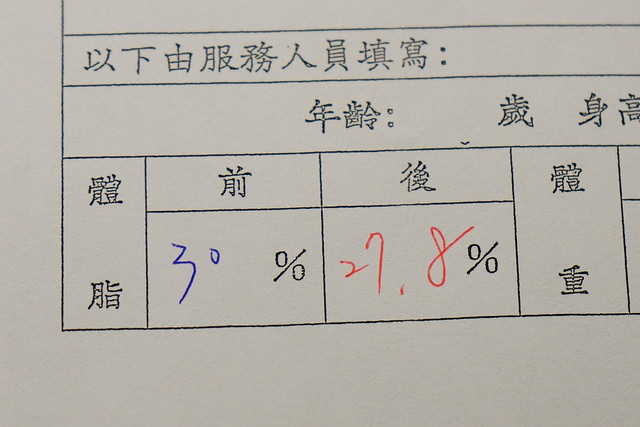 以下由服務人員填寫:
年齡: 歲 身高
體脂 前 後 體重
30 % 27.8 %